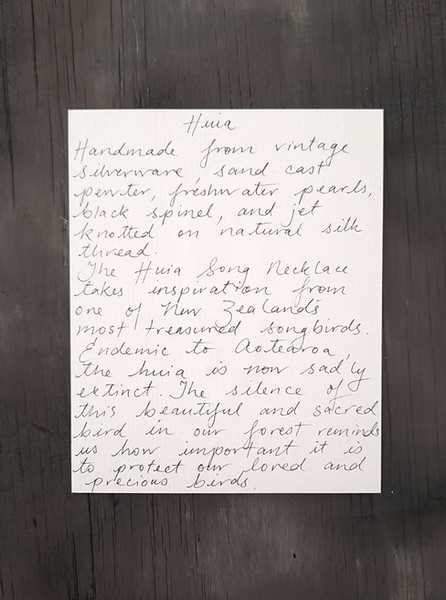 Huia
Handmade from vintage
silverware, sand cast
pewter, freshwater pearls,
black spinel, and jet
knotted on natural silk
thread.
The Huia Song Necklace
takes inspiration from
one of New Zealand's
most treasured songbirds.
Endemic to Aotearoa,
the huia is now sadly
extinct. The silence of
this beautiful and sacred
bird in our forest reminds
us how important it is
to protect our loved and
precious birds.